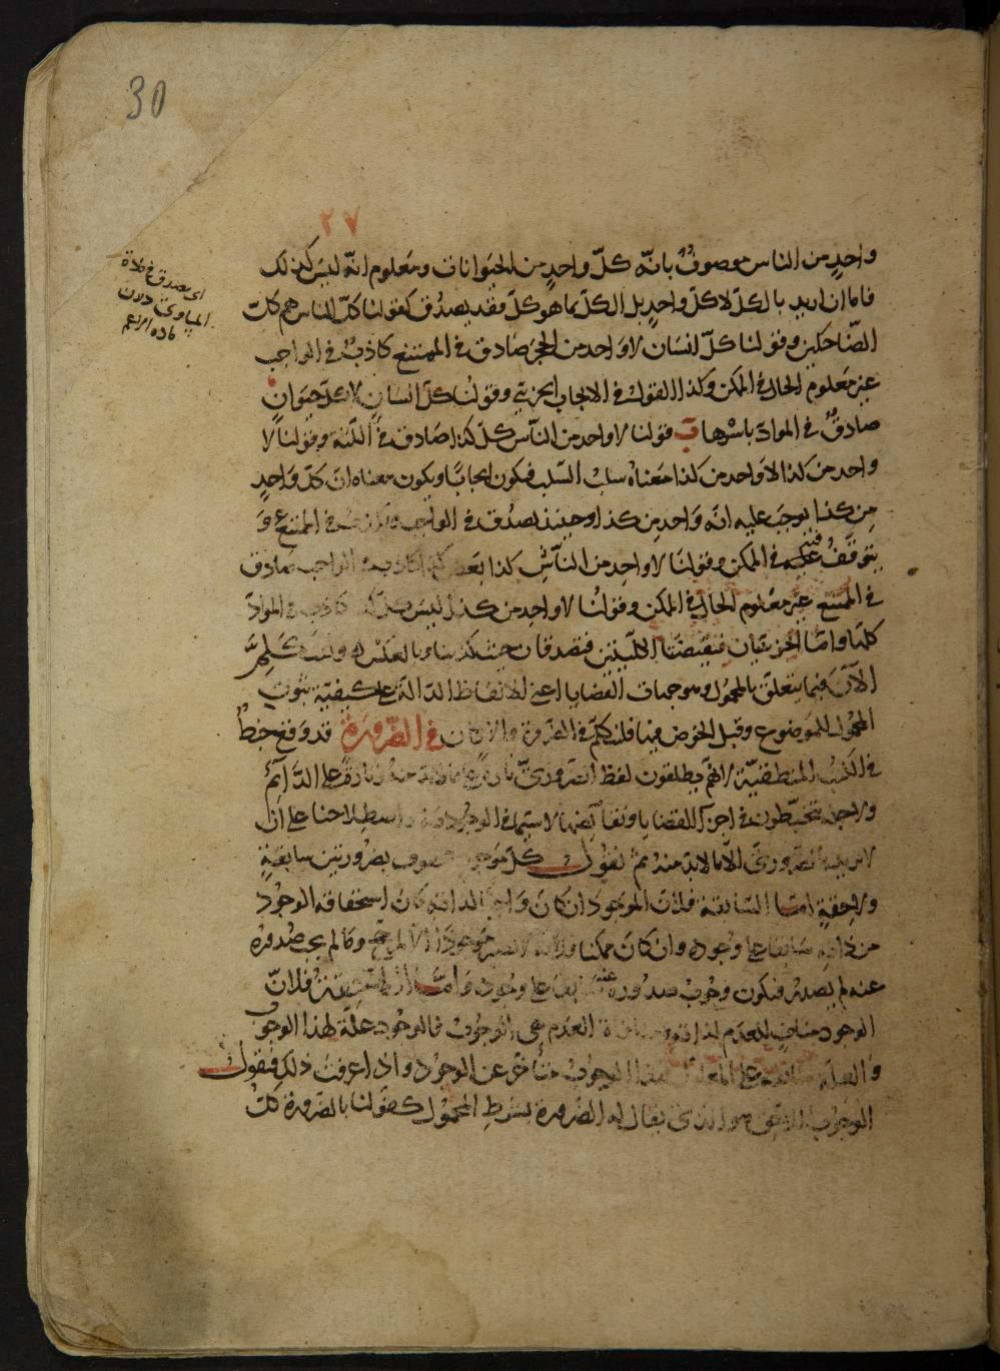 30
٢٧
واحد من الناس موصوف بانّه كلّ واحد من الحيوانات ومعلوم انّه ليس كذلك
فاما ان اريد بالكلّ لا كلّ واحد بل الكلّ بما هو كلّ فقد يصدق كقولنا كلّ الناس هم كلّ
الضّاحكين وقولنا كلّ انسان لا واحد من الحجر صادق في الممتنع كاذب في الواجب
غير معلوم الحال في الممكن وكذا القول في الايجاب الجزئي وقولنا كلّ انسان لا كلّ حيوان
صادق في الموادّ باسرها ب قولنا لا واحد من النّاس كلّ كذا صادق في وقولنا لا
واحد من كذا لا واحد من كذا معناه سلب السّلب فيكون ايجابا ويكون معناه انّ كلّ واحد
من كذا يوجب عليه انّه واحد من كذا وحينئذ يصدق في الواجب في الممتنع و
يتوقّف فيه في الممكن وقولنا لا واحد من النّاس كذا بعض في الواجب صادق
في الممتنع غير معلوم الحال في الممكن وقولنا لا واحد من كذا ليس كلّ كذا كاذب في الموادّ
كلّها وامّا الجزئيتان فنقيضتا الكلّيتين فتصدقان حيث تكذبان وبالعكس ولنتكلم
الآن فيما يتعلق بالمحمول وهو جهات القضايا اعني الالفاظ الدالة على كيفيّة ثبوت
المحمول للموضوع وقبل الخوض فيها فلنتكلم في الضرورة والامكان في الضّرورة قد وقع خبط
في الكتب المنطقيّة لانهم يطلقون لفظ الضروريّ تارة على ما لا بدّ منه وتارة على الدّائم
ولاجله تخبّطون في اجزاء القضايا ونقائضها لاسيما في الوجوديّة واصطلاحنا على ان
لا نريد بالضروريّ الّا ما لا بدّ منه ثم نقول كلّ موجود محفوف بضرورتين سابقة
ولاحقة امّا السّابقة فلانّ الموجود ان كان واجبا لذاته كان استحقاقه الوجود
من ذاته سابقا على وجوده وان كان ممكنا فلانه لا يصير موجودا الا لمرجّح وما لم يجب صدوره
عنه لم يصدر فيكون وجوب صدوره عنه سابقا على وجوده وامّا اللاحقة فلانّ
الوجود مناف للعدم لذاته ومنافاة العدم هي الوجوب فالوجود علّة لهذا الوجوب
والعلّة سابقة على المعلول فهذا الوجوب متأخّر عن الوجود واذا عرفت ذلك فنقول
الوجوب اللاحق هو الذي يقال له الضرورة بشرط المحمول كقولنا بالضرورة كلّ
اى يصدق في مادة
المساوى دون
مادة الاعم